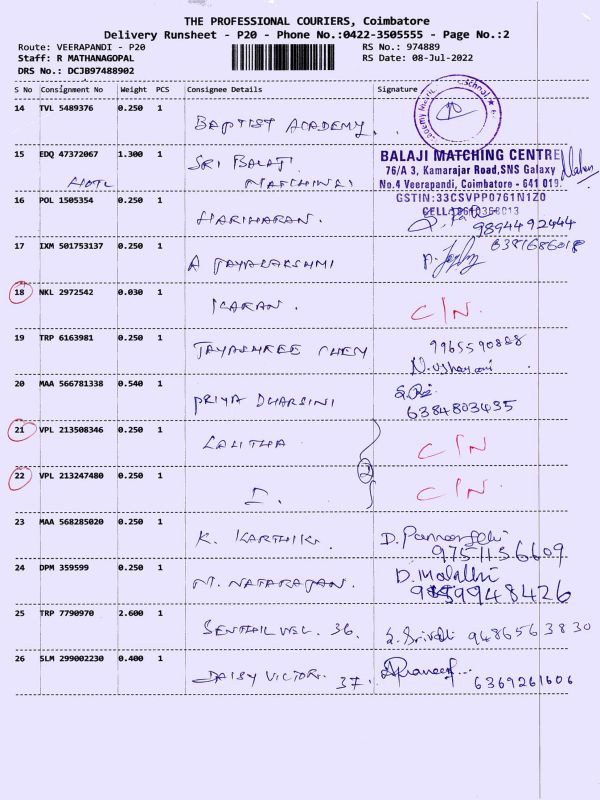 THE PROFESSIONAL COURIERS, Coimbatore
Delivery Runsheet - P20 - Phone No.:0422-3505555 - Page No.:2
Route: VEERAPANDI - P20 RS No.: 974889
Staff: R MATHANAGOPAL RS Date: 08-Jul-2022
DRS No.: DCJB97488902
S No Consignment No Weight PCS Consignee Details Signature
14 TVL 5489376 0.250 1
BAPTIST ACADEMY.
15 EDQ 47372067 1.300 1 SRI BALAJI
BALAJI MATCHING CENTRE
76/A 3, Kamarajar Road,SNS Galaxy
No.4 Veerapandi, Coimbatore - 641 019.
GSTIN:33CSVPP0761N1Z0
16 POL 1505354 0.250 1
HARIHARAN. 9894492444
17 IXM 501753137 0.250 1 6381686018
A JAYALAKSHMI
18 NKL 2972542 0.030 1
KARAN. C/N.
19 TRP 6163981 0.250 1 9965590888
JAYASHREE
20 MAA 566781338 0.540 1
PRIYA DHARSINI 6384803435
21 VPL 213508346 0.250 1
LALITHA C/N
22 VPL 213247480 0.250 1 2
D. C/N.
23 MAA 568285020 0.250 1
K. KARTHIK. 9751156609
24 DPM 359599 0.250 1 D. Malathi
M. NATARAJAN.
25 TRP 7790970 2.600 1
SENTHILVEL. 36. 9486563830
26 SLM 299002230 0.400 1
DAISY VICTOR. 37. 6369261606